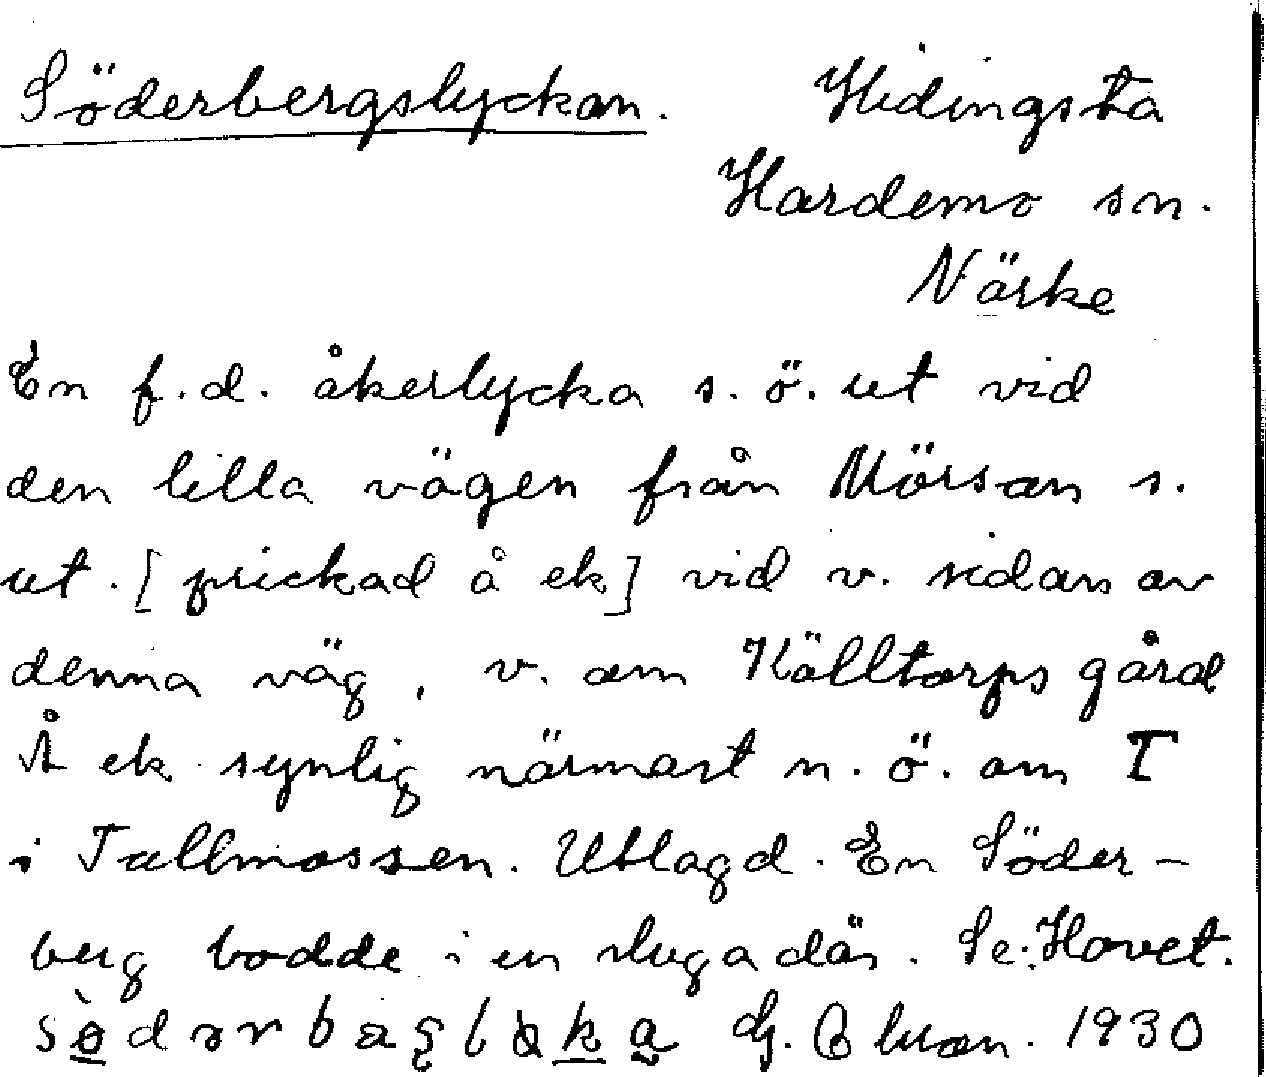 Söderbergslyckan. Hidingsta
Hardemo sn.
Närke
En f.d. åkerlycka s.ö. ut vid
den lilla vägen från Mörsan s.
ut. [prickad å ek] vid v. sidan av
denna väg, v. om Källtorps gård
Å ek synlig närmast n.ö. om T
i Tallmossen. Utlagd. En Söder-
berg bodde i en stuga där. Se: Hovet.
1930